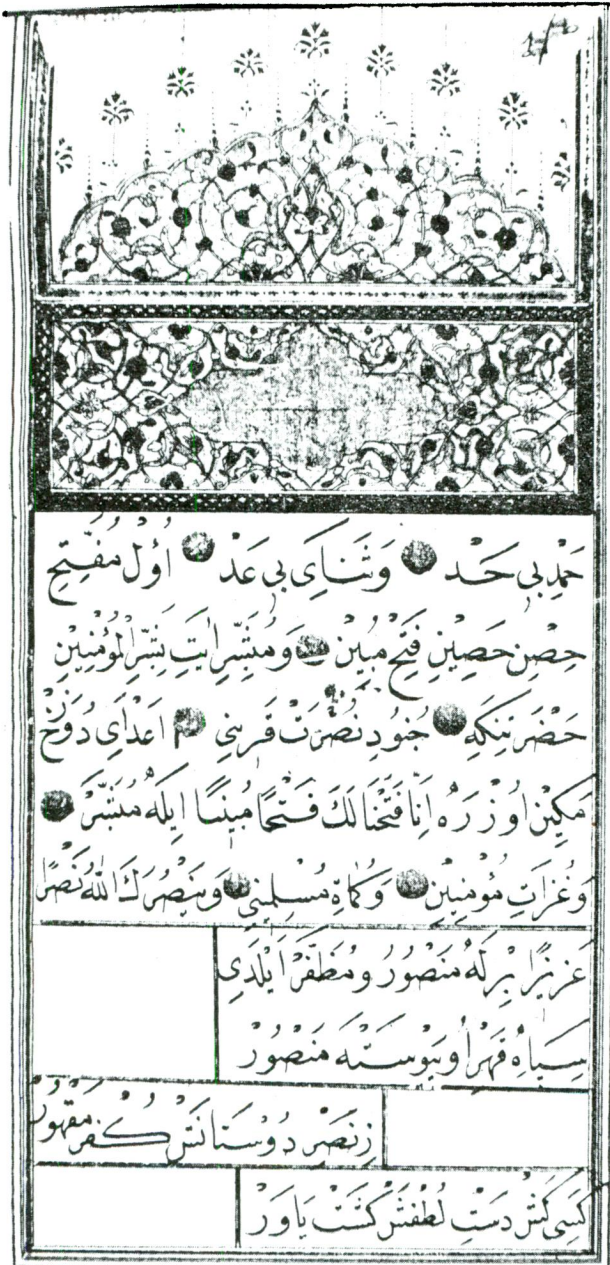 حَمْدِ بی حَدْ وَثَنَایِ بی عَدْ اُوْل مُفَتِّحِ
حِصْنِ حَصِینِ فَتْحِ مُبِیْن وَمُبَشِّرِ اٰیَتِ بَشِّرِ الْمُؤْمِنِیْن
حَضْرَتِنَکَه جُنُودِ نُصْرَتْ قَرِینی اَعْدَایِ دُوزَخْ
مَکِیْن اُوزَرَه اِنَّا فَتَحْنَا لَكَ فَتْحًا مُبِینًا اِیلَه مُبَشَّرْ
وَغُزَاتِ مُؤْمِنِیْن وَکُمَاةِ مُسْلِمِینی وَیَنْصُرَكَ اللّٰهُ نَصْرًا
عَزِیْزًا بِرْلَه مَنْصُورُ و مُظَفَّرْ اَیْلَدِی
سِپَاهِ قَهْرِ اُو پَیْوَسْتَه مَنْصُورْ
زِنَصْرِ دُوسْتَانَشْ کُفْرْ مَقْهُورْ
کَسِی کَشْ دَسْتِ لُطْفَشْ کَشْتْ یَاوَرْ